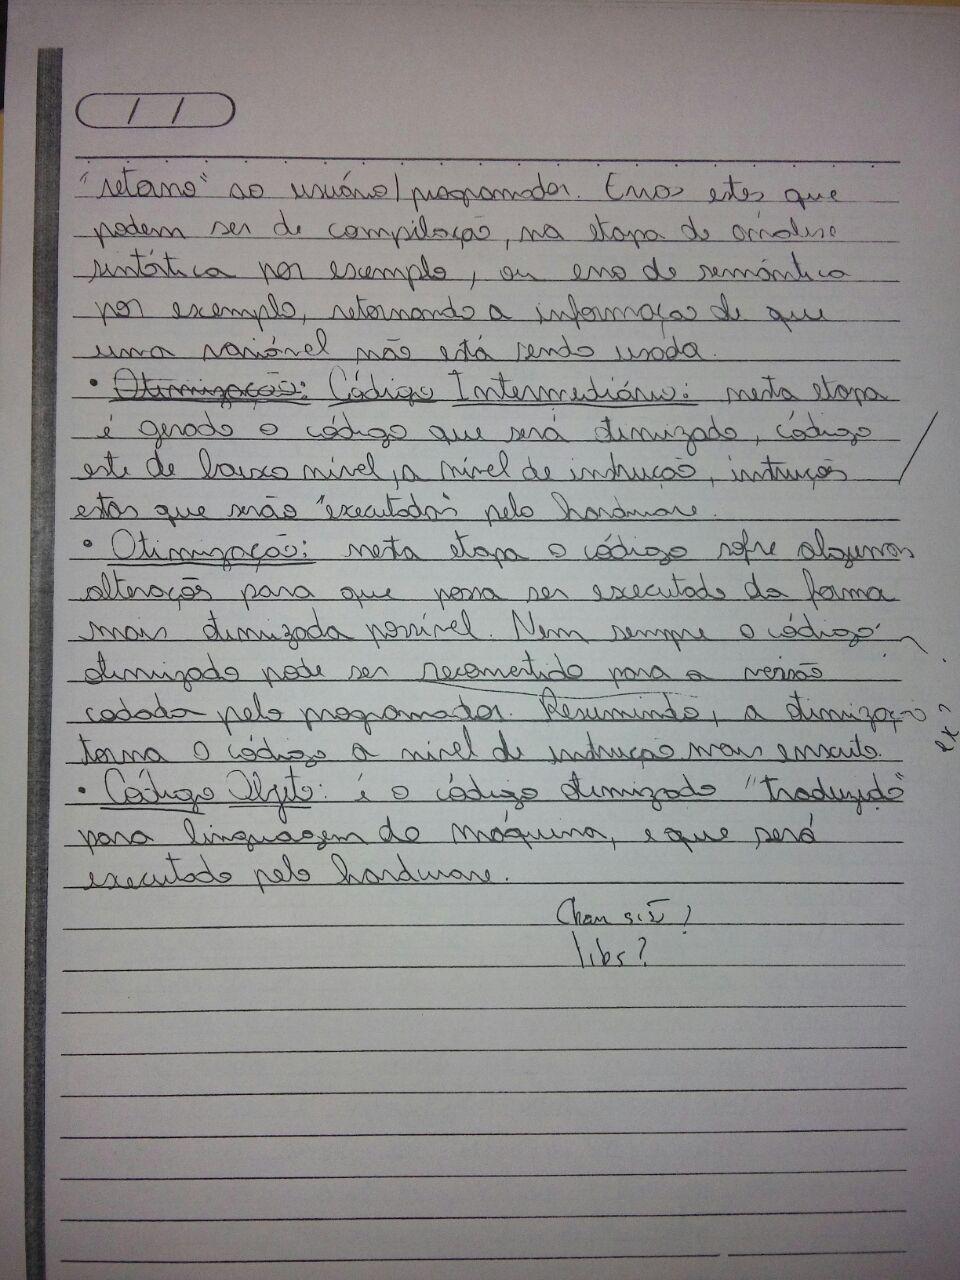 / /
"retorno" ao usuário/programador. Erros estes que
podem ser de compilação, na etapa de análise
sintática por exemplo, ou erro de semântica
por exemplo, retornando a informação de que
uma variável não está sendo usada.
• Otimização: Código Intermediário: nesta etapa
é gerado o código que será otimizado, código
este de baixo nível, a nível de instrução, instruções
estas que serão "executadas" pelo hardware.
• Otimização: nesta etapa o código sofre algumas
alterações para que possa ser executado da forma
mais otimizada possível. Nem sempre o código
otimizado pode ser reconvertido para a versão
codada pelo programador. Resumindo, a otimização
torna o código a nível de instrução mais enxuto.
ex?
• Código Objeto: é o código otimizado "traduzido"
para linguagem de máquina, e que será
executado pelo hardware.
libs?